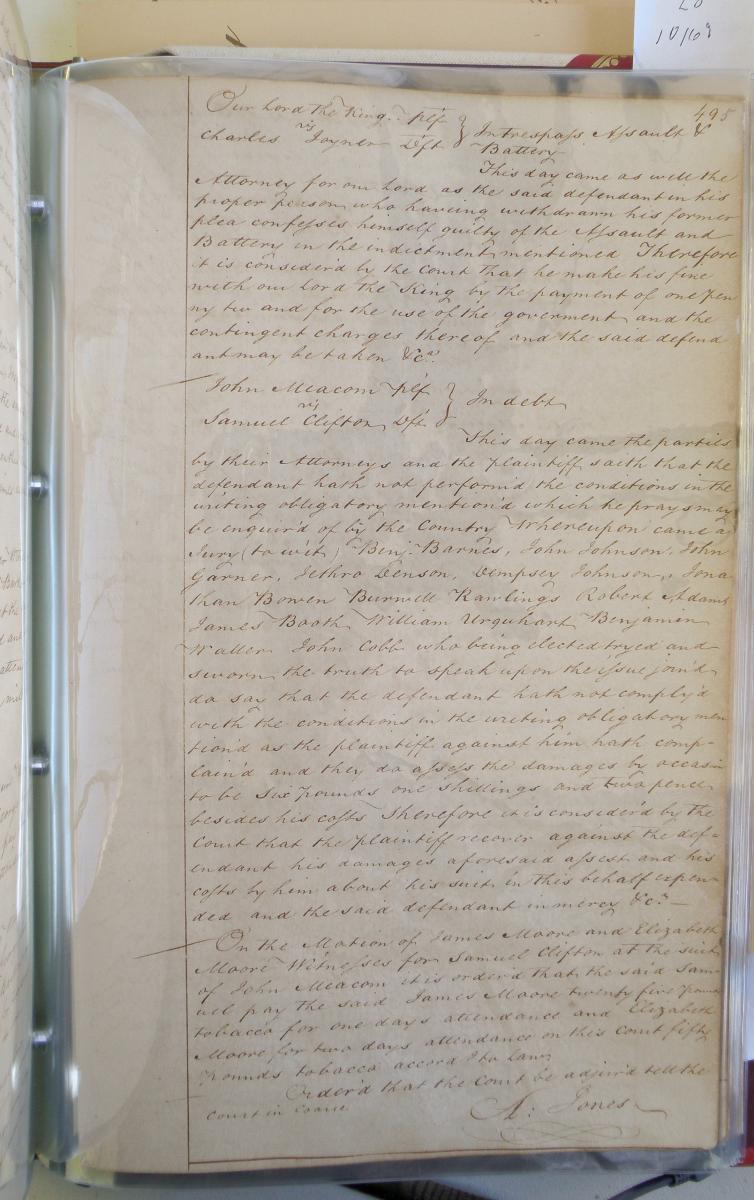 10/69
495
Our Lord the King. plf
vs } In trespass Assault &
Charles Joyner Dft Battery
This day came as well the
Attorney for our Lord as the said defendant in his
proper person who having withdrawn his former
plea confesses himself guilty of the Assault and
Battery in the indictment mentioned Therefore
it is consider'd by the Court that he make his fine
with our Lord the King by the payment of one pen
ny two and for the use of the goverment and the
contingent charges thereof and the said defend
ant may be taken &ca.
John Meacom plf
vs } In debt
Samuel Clifton Dft
This day came the parties
by their Attorneys and the plaintiff saith that the
defendant hath not perform'd the conditions in the
writing obligatory mention'd which he prays may
be enquir'd of by the Country Whereupon came a
Jury (to wit) Benj: Barnes, John Johnson, John
Garner, Jethro Denson, Dempsey Johnson, Jona
than Bowen Burwell Rawlings Robert Adams
James Booth William Urquhart Benjamin
Waller John Cobb who being elected tryed and
sworn the truth to speak upon the issue join'd
do say that the defendant hath not comply'd
with the conditions in the writing obligatory men
tion'd as the plaintiff against him hath comp-
lain'd and they do assess the damages by occasion
to be Six pounds one shillings and two pence
besides his costs Therefore it is consider'd by the
Court that the plaintiff recover against the def-
endant his damages aforesaid assest and his
costs by him about his suit in this behalf expen
ded and the said defendant in mercy &ca. —
On the Motion of James Moore and Elizabeth
Moore Witnesses for Samuel Clifton at the suit
of John Meacom it is order'd that the said Sam
uel pay the said James Moore twenty five poun
tobacco for one days attendance and Elizabeth
Moore for two days attendance on this Court fifty
pounds tobacco accord.g to Law
Order'd that the Court be adjur'd till the
Court in Course
A: Jones